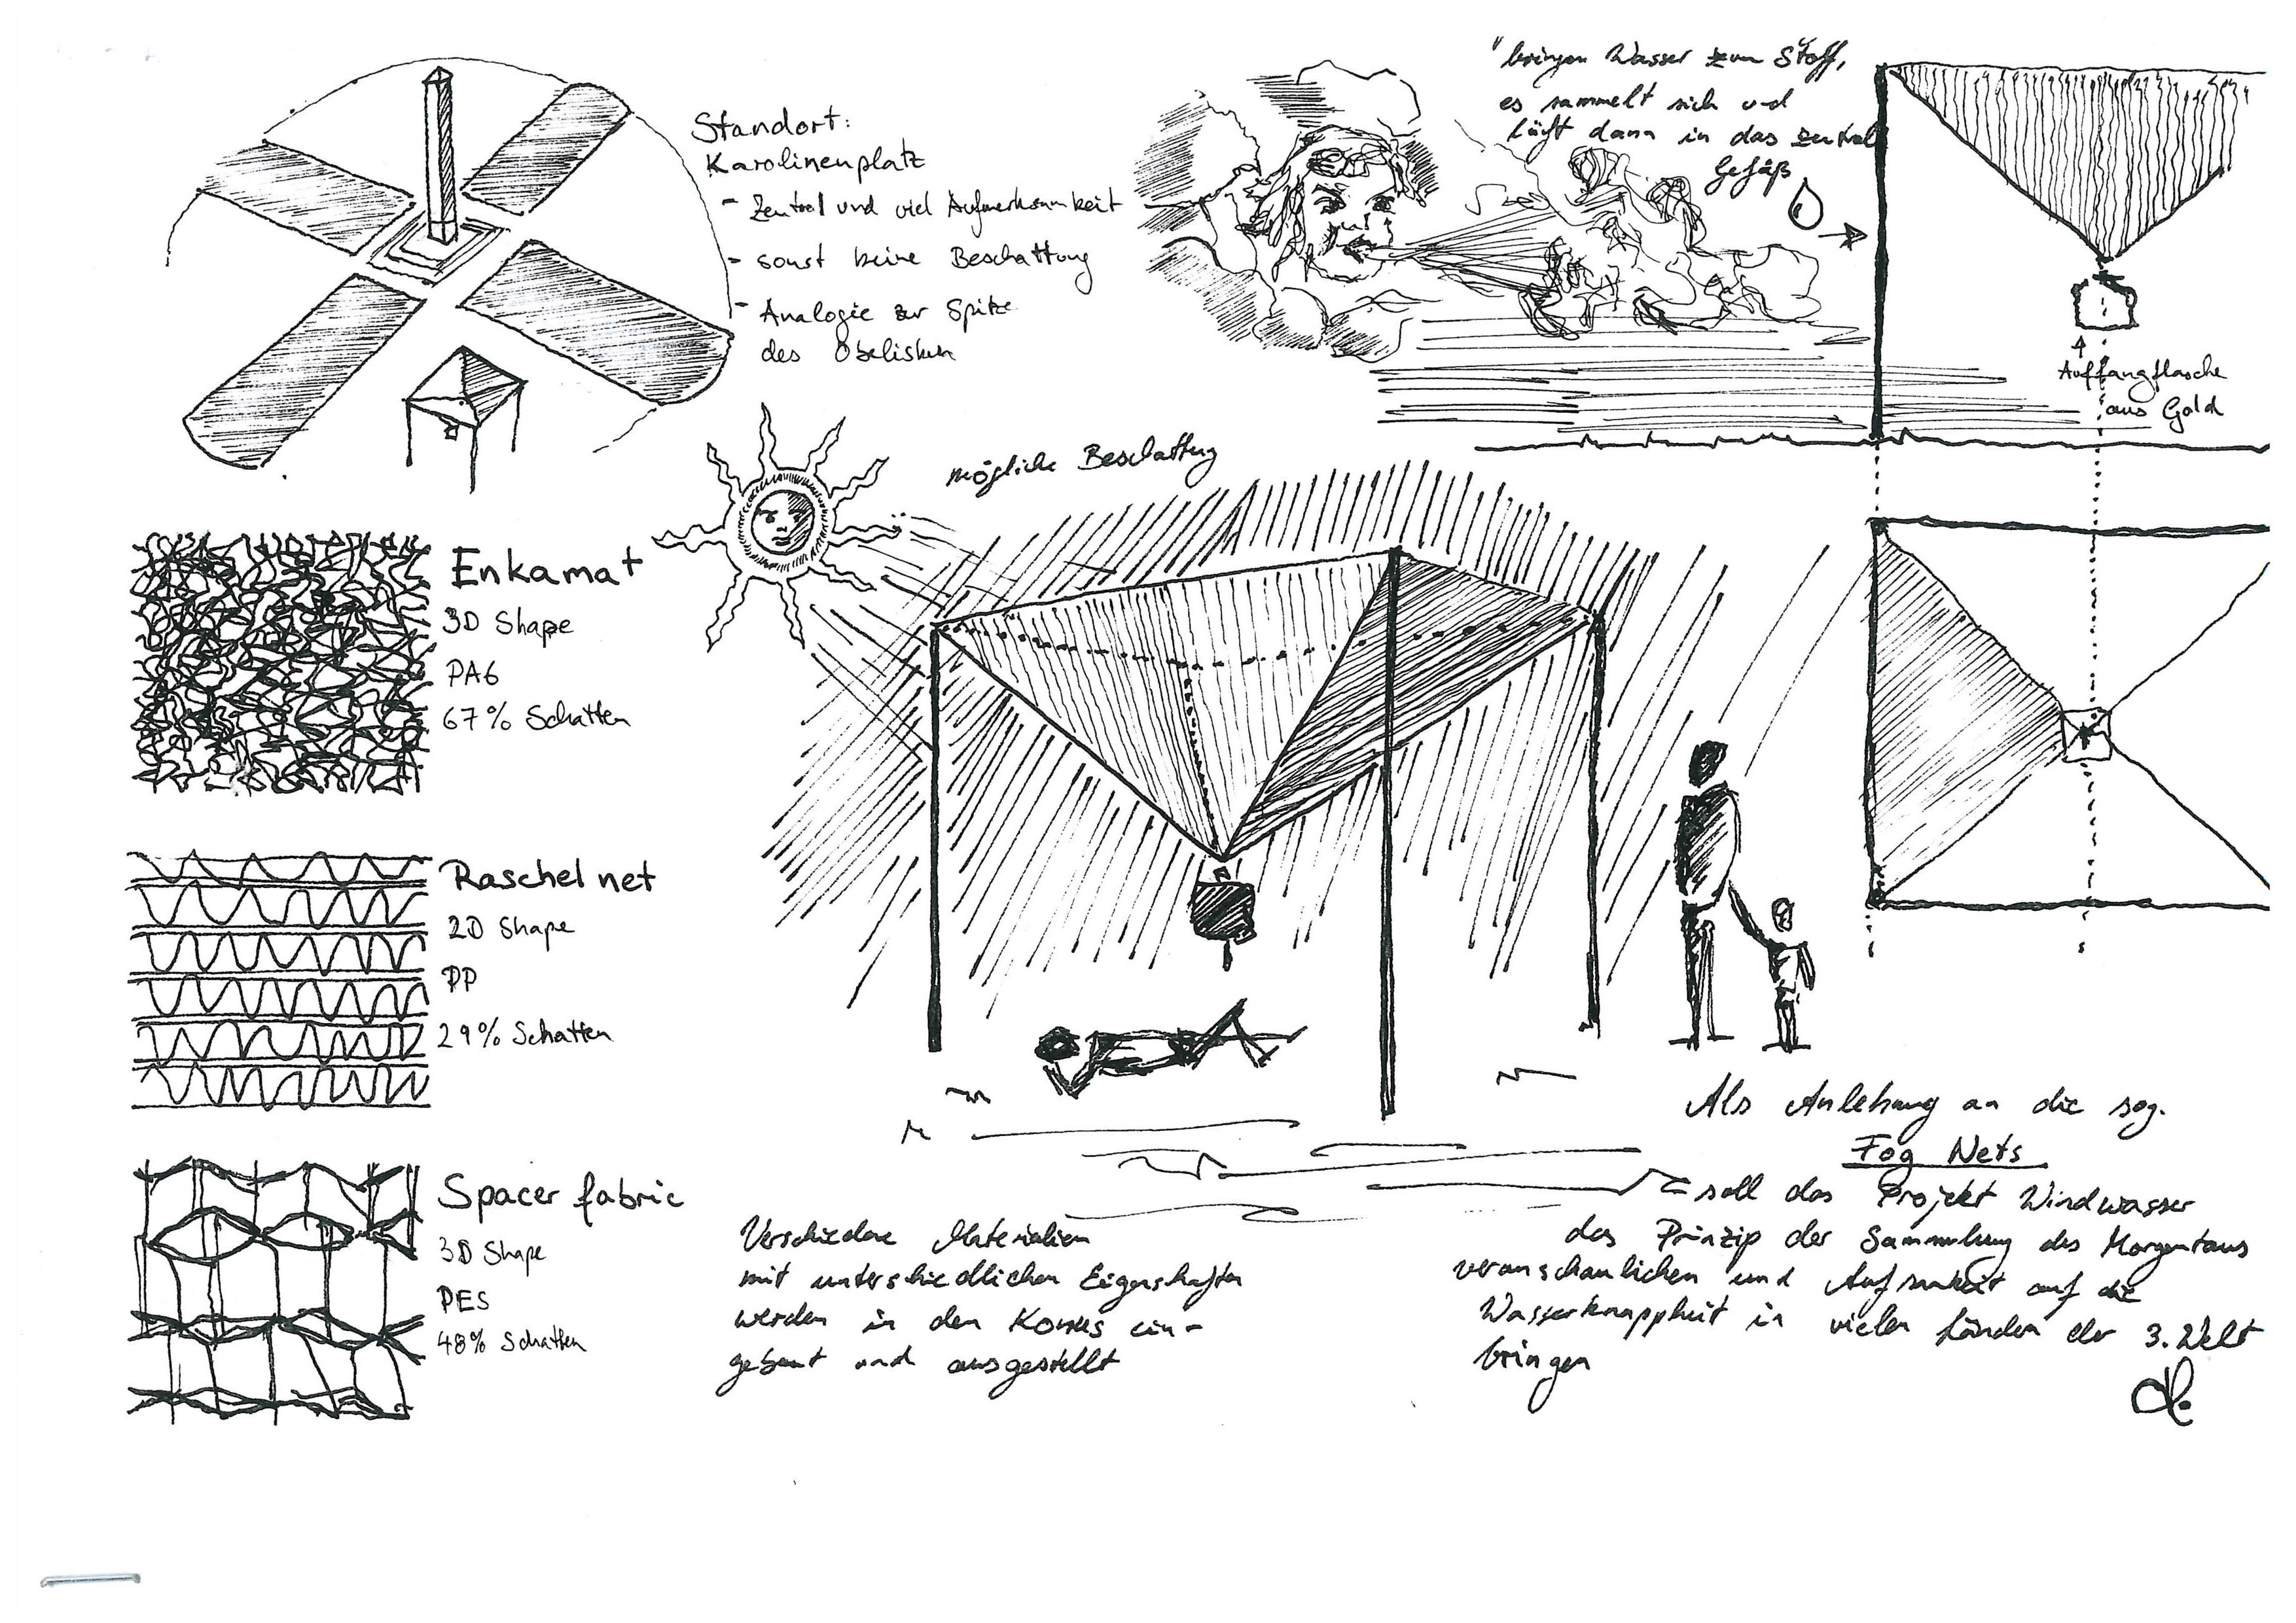 Standort:
Karolinenplatz
- Zentral und viel Aufmerksamkeit
- sonst keine Beschattung
- Analogie zur Spitze
des Obelisken
"bringen Wasser zum Stoff,
es sammelt sich und
läuft dann in das zentrale
Gefäß
Auffangflasche
aus Gold
mögliche Beschattung
Enkamat
3D Shape
PA6
67% Schatten
Raschel net
2D Shape
PP
29% Schatten
Spacer fabric
3D Shape
PES
48% Schatten
Verschiedene Materialien
mit unterschiedlichen Eigenschaften
werden in den Konus ein-
gebaut und ausgestellt
Als Anlehnung an die sog.
Fog Nets
soll das Projekt Windwasser
das Prinzip der Sammlung des Morgentaus
veranschaulichen und auf die
Wasserknappheit in vielen Länden der 3. Welt
bringen